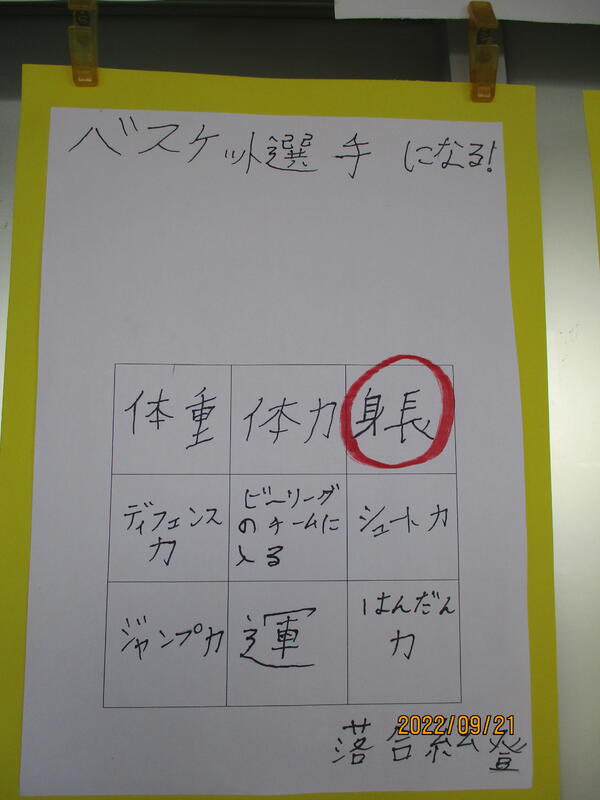 バスケット選手になる!
体重 体力 身長
ディフェンス
力
ビーリーグ
のチームに
入る
シュート力
ジャンプ力 運
はんだん
力
2022/09/21
落合絵登